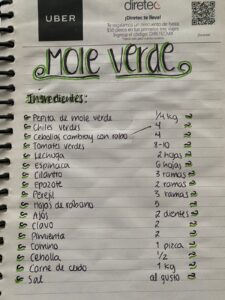 UBER
diretec
¡Diretec te lleva!
Mole verde
Ingredientes:
Pepita de mole verde 1/4 kg
Chiles verdes 4
Cebollas cambray con rabo 4
Tomates verdes 8-10
Lechuga 2 hojas
Espinaca 6 hojas
Cilantro 3 ramas
Epazote 2 ramas
Perejil 3 ramas
Hojas de rábano 5
Ajos 2 dientes
Clavo 2
Pimienta 2
Comino 1 pizca
Cebolla 1/2
Carne de cerdo 1 kg
Sal al gusto